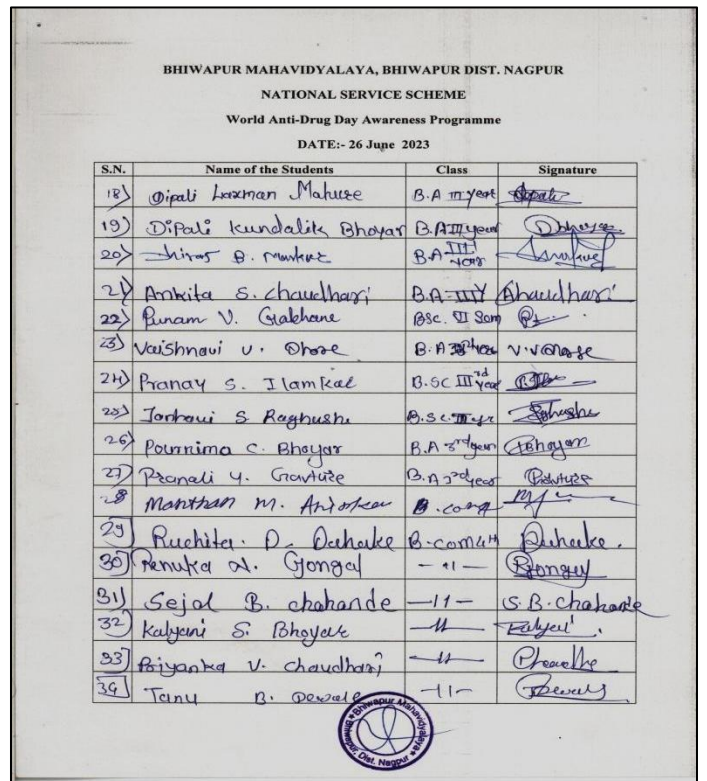 BHIWAPUR MAHAVIDYALAYA, BHIWAPUR DIST. NAGPUR
NATIONAL SERVICE SCHEME
World Anti-Drug Day Awareness Programme
DATE:- 26 June 2023
S.N. Name of the Students Class Signature
18) Dipali Laxman Mahure B.A III year
19) Dipali Kundalik Bhoyar B.A III year
20) B. B.A III year
21) Ankita S. Chaudhari B.A-III Y Chaudhari
22) Punam V. Gakhane BSc. VI Sem
23) Vaishnavi U. Dhore B.A 3rd year
24) Pranay S. Ilamkar B.SC III rd year
25) Janhavi S Raghushe B.Sc. III yr
26) Pournima C. Bhoyar B.A 3rd year Bhoyar
27) Pranali Y. Gavture B.A 3rd year Gavture
28 Manthan M. B.com
29) Ruchita. D. Dahake B-com 4th Dahake.
30) Renuka N. Gongal -11- Gongal
31) Sejal B. chahande -11- S.B. chahande
32) Kalyani S. Bhoyar -11- Kalyani.
33) Priyanka V. Chaudhari -11-
34) Tanu B. Dewale -11-
Bhiwapur Mahavidyalaya
Bhiwapur, Dist. Nagpur